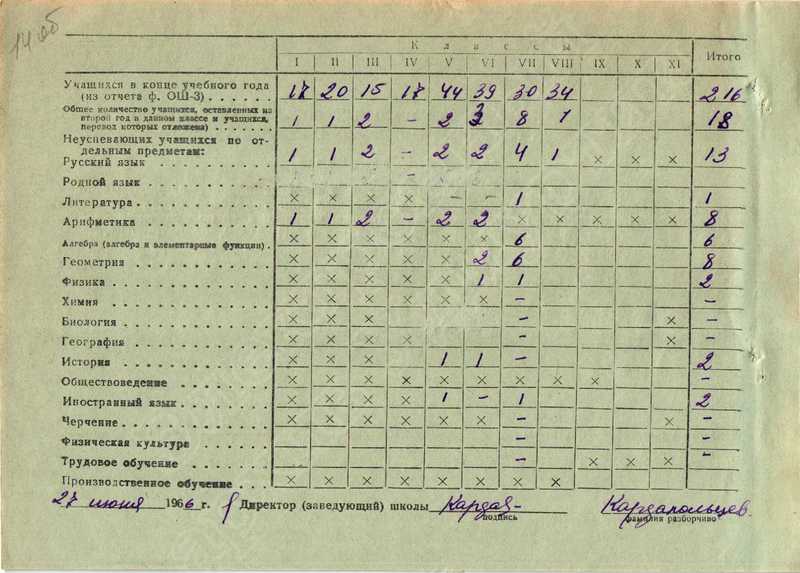 14 об
Классы
I II III IV V VI VII VIII IX X XI Итого
Учащихся в конце учебного года
(из отчета ф. ОШ-3) . . . . . . 17 20 15 17 44 39 30 34 216
Общее количество учащихся, оставленных на
второй год в данном классе и учащихся,
перевод которых отложена) . . . . . . . 1 1 2 – 2 3 8 1 18
Неуспевающих учащихся по от-
дельным предметам:
Русский язык . . . . . . . . . . 1 1 2 – 2 2 4 1 × × × 13
Родной язык . . . . . . . . . . –
Литература . . . . . . . . . . . × × × × – – 1 1
Арифметика . . . . . . . . . . 1 1 2 – 2 2 × × × × × 8
Алгебра (алгебра и элементарные функции) . × × × × × × 6 6
Геометрия . . . . . . . . . . . × × × × × 2 6 8
Физика . . . . . . . . . . . . × × × × × 1 1 2
Химия . . . . . . . . . . . . × × × × × × – –
Биология . . . . . . . . . . . × × × – × –
География . . . . . . . . . . . × × × × – × –
История . . . . . . . . . . . × × × 1 1 – 2
Обществоведение . . . . . . . × × × × × × × × × –
Иностранный язык . . . . . . . . × × × × 1 – 1 2
Черчение . . . . . . . . . . . × × × × × × – × –
Физическая культура . . . . . . – –
Трудовое обучение . . . . . . . – × × ×
Производственное обучение . . . × × × × × × × ×
27 июня 1966 г. Директор (заведующий) школы Кардап– Кардапольцев.
подпись фамилия разборчиво